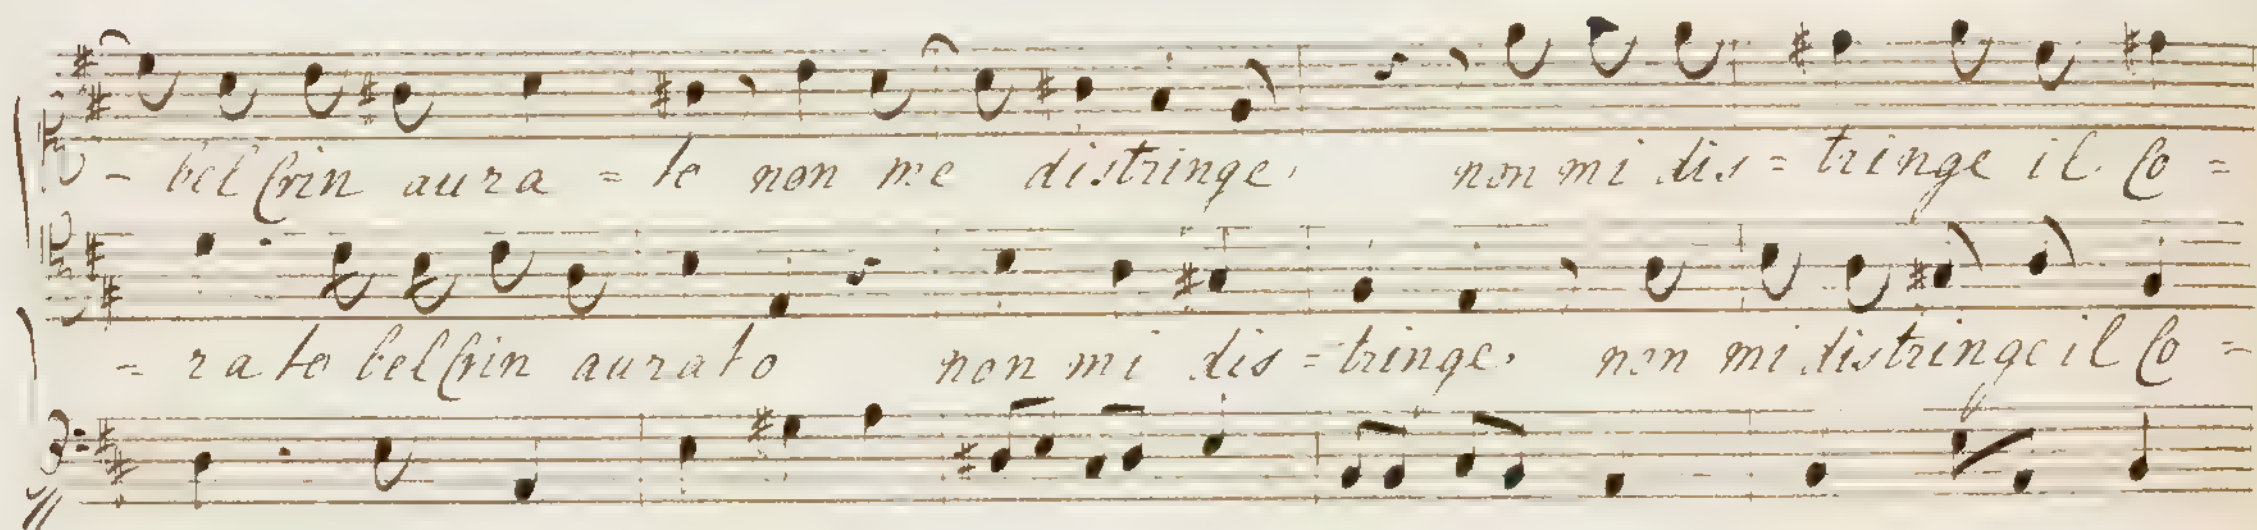 - bel Crin aura = to non me distringe. non mi dis = tringe il Co =
- rato bel Crin aurato non mi dis = tringe. non mi distringe il Co =